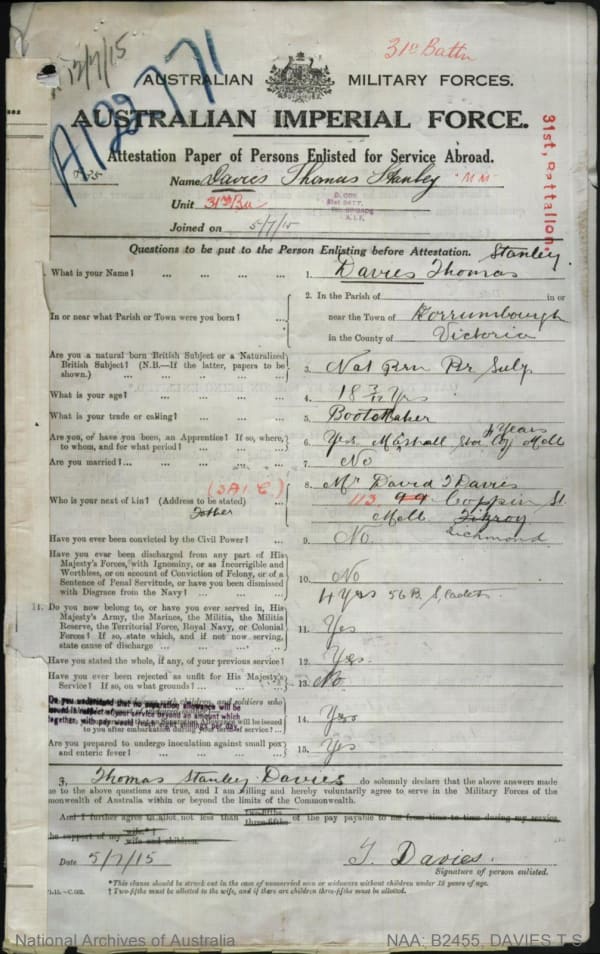 12/7/15
31st Battn
A122771
AUSTRALIAN MILITARY FORCES.
AUSTRALIAN IMPERIAL FORCE.
Attestation Paper of Persons Enlisted for Service Abroad.
31st, Battalion.
Name Davies Thomas Stanley "MM"
Unit 31st Bn
Joined on 5/7/15
Questions to be put to the Person Enlisting before Attestation.
Stanley
What is your Name? ... ... ... ... 1. Davies Thomas
In or near what Parish or Town were you born? ... 2. In the Parish of in or
near the Town of Korrumbourgh
in the County of Victoria
Are you a natural born British Subject or a Naturalized British Subject? (N.B.—If the latter, papers to be shown.) ... 3. Nat Brn Br Subj.
What is your age? ... 4. 18 3/12 Yrs
What is your trade or calling? ... 5. Bootmaker
Are you, or have you been, an Apprentice? If so, where, to whom, and for what period? ... 6. Yes Marshall Shoe Coy Melb 4 Years
Are you married?... ... 7. No
Who is your next of kin? (Address to be stated) ... 8. Mr David J Davies
Father
113 99 Coppin St.
Melb Fitzroy
Richmond
Have you ever been convicted by the Civil Power? ... 9. No.
Have you ever been discharged from any part of His
Majesty's Forces, with Ignominy, or as Incorrigible and
Worthless, or on account of Conviction of Felony, or of a
Sentence of Penal Servitude, or have you been dismissed
with Disgrace from the Navy? ... 10. No
4 Yrs 56B S. Cadets.
11. Do you now belong to, or have you ever served in, His
Majesty's Army, the Marines, the Militia, the Militia
Reserve, the Territorial Force, Royal Navy, or Colonial
Forces? If so, state which, and if not now serving,
state cause of discharge ... 11. Yes
Have you stated the whole, if any, of your previous service? 12. Yes.
Have you ever been rejected as unfit for His Majesty's
Service? If so, on what grounds? ... 13. No.
Do you understand that no separation allowance will be
issued in respect of your service beyond an amount which
together with pay would reach eight shillings per day.
14. Yes
Are you prepared to undergo inoculation against small pox
and enteric fever? ... 15. Yes
I, Thomas Stanley Davies do solemnly declare that the above answers made
me to the above questions are true, and I am willing and hereby voluntarily agree to serve in the Military Forces of the
monwealth of Australia within or beyond the limits of the Commonwealth.
And I further agree to allot not less than two-fifths three-fifths of the pay payable to me from time to time during my service
the support of my wife* wife and children
Date 5/7/15
T. Davies.
Signature of person enlisted.
*This clause should be struck out in the case of unmarried men or widowers without children under 18 years of age.
† Two-fifths must be allotted to the wife, and if there are children three-fifths must be allotted.
National Archives of Australia
NAA: B2455, DAVIES T S